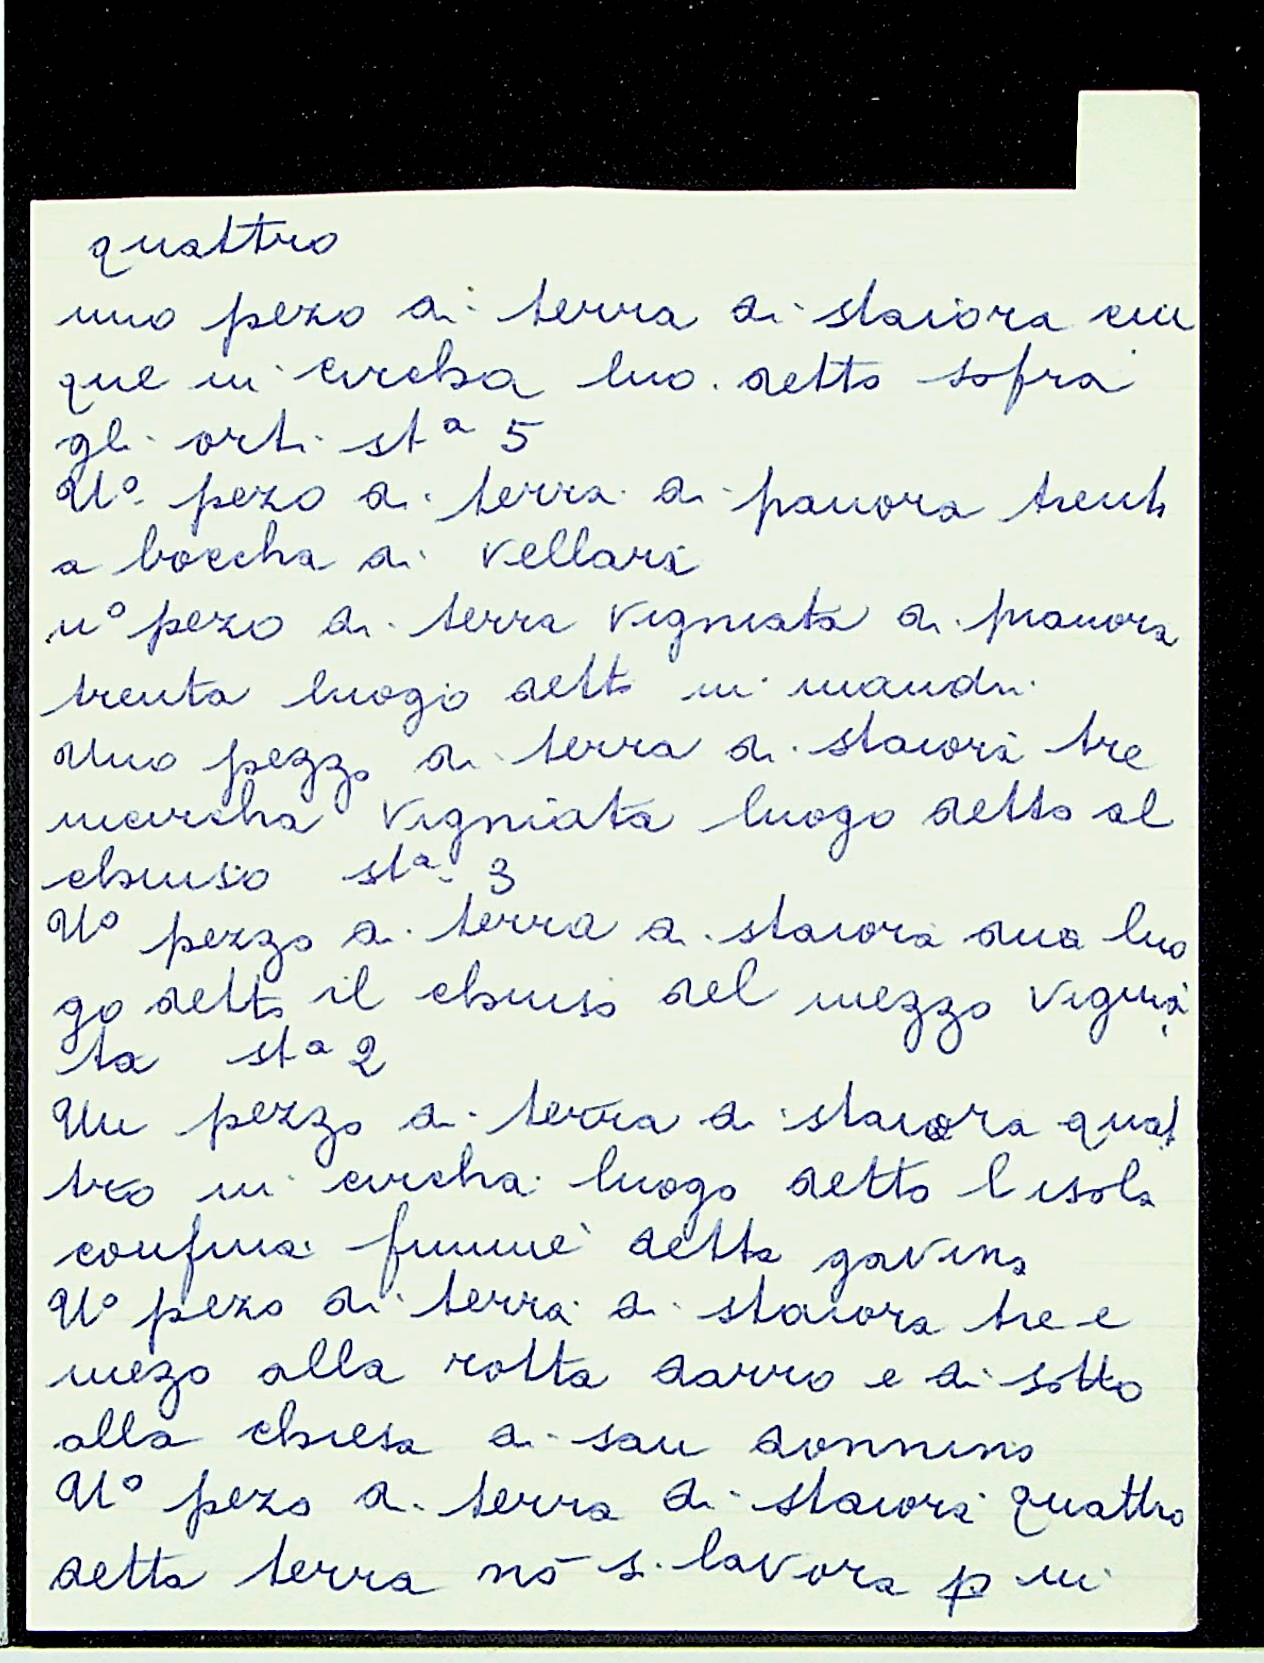 quattro
uno pezo di terra di staiora cin
que in circha luo. detto sopra
gli orti st.ª 5
Uº pezo di terra di panora trenta
a boccha di Vellari
uº pezo di terra vigniata di panora
trenta luogo detto in mandri
Uno pezzo di terra di staiora tre
incircha vigniata luogo detto al
chiuso st.ª 3
Uº pezzo di terra di staiora dua luo
go detto il chiuso del mezzo vignia
ta stª 2
Un pezzo di terra di staiora quat
tro in circha luogo detto l isola
confina fiume detto gavina
Uº pezo di terra di staiora tre e
mezo alla rotta darro e di sotto
alla chiesa di san donnino
Uº pezo di terra di staiora quattro
detta terra nō si lavora p in